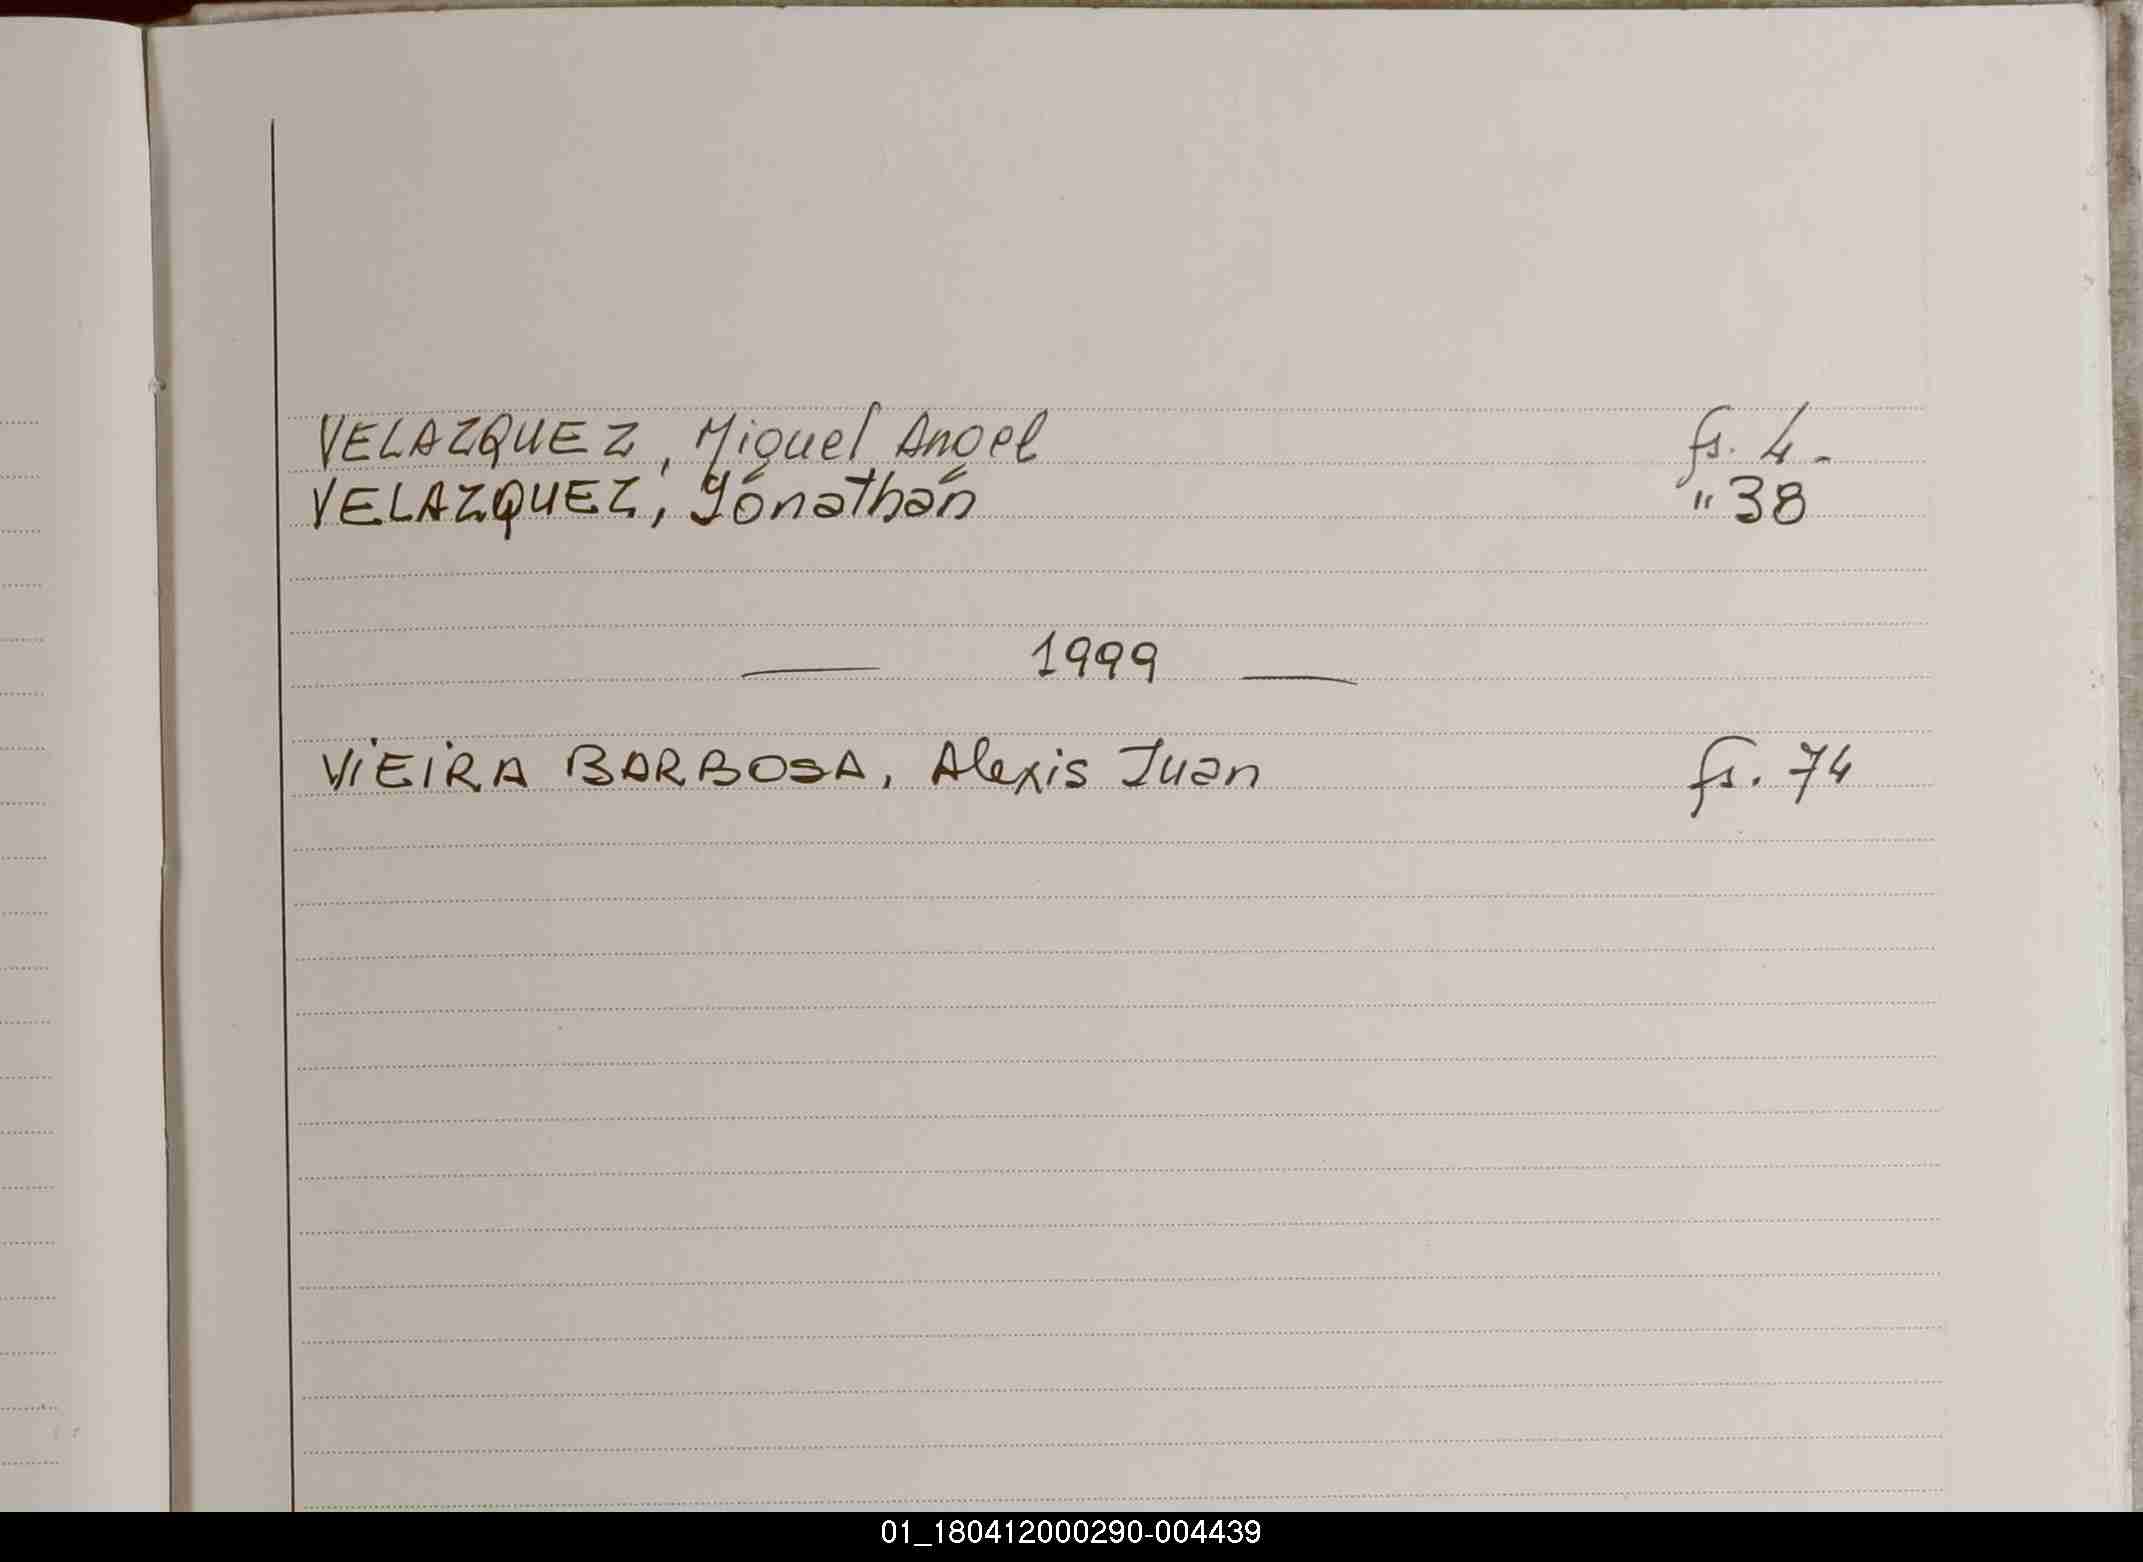 VELAZQUEZ, Miguel Angel fs. 4.-
VELAZQUEZ, Jonathan " 38
1999
VIEIRA BARBOSA, Alexis Juan fs. 74
01_180412000290-004439